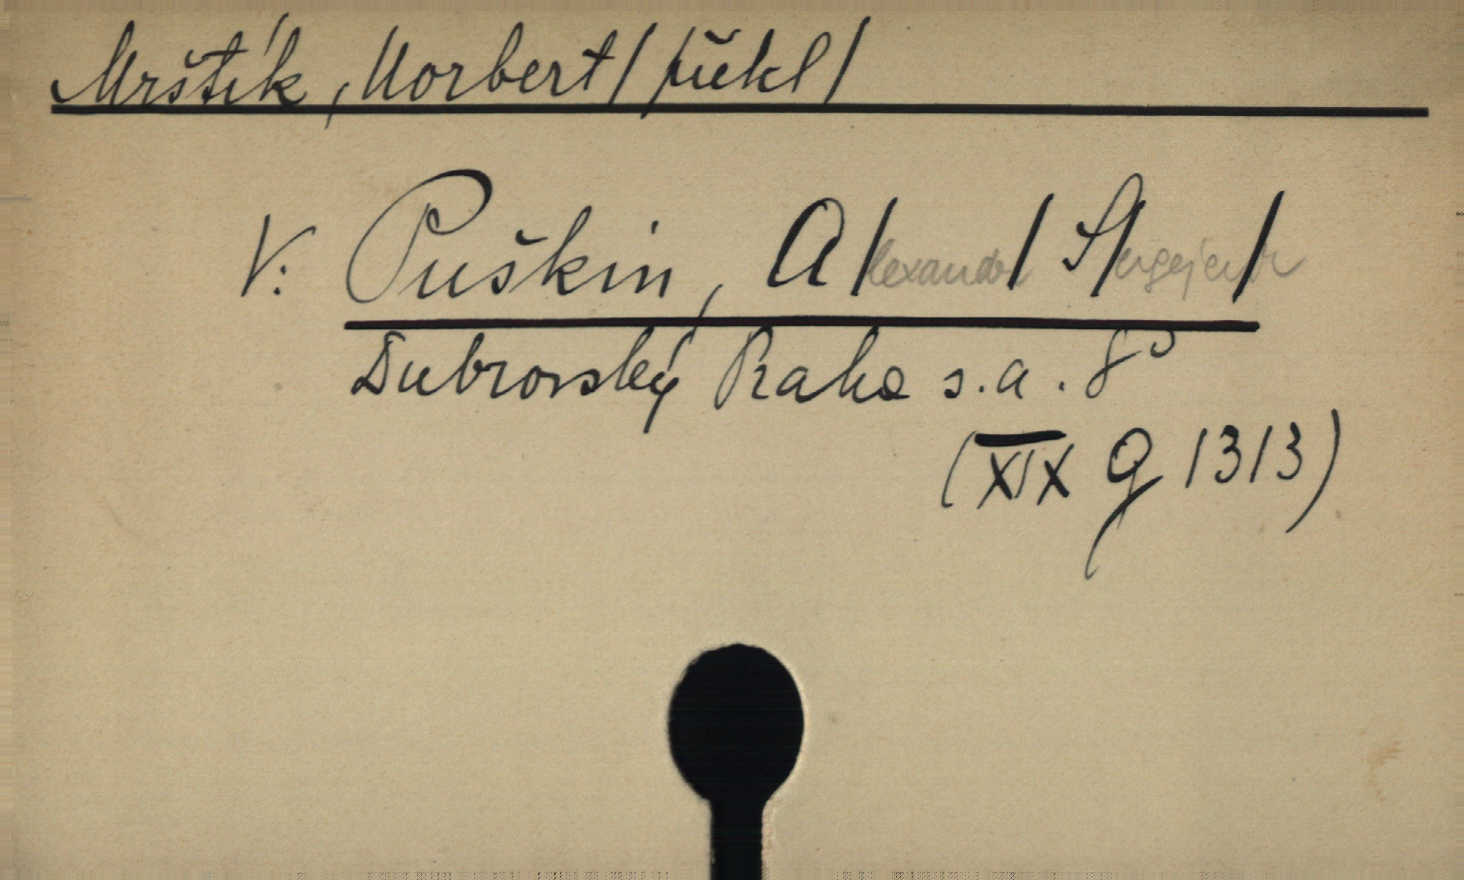 Mrštík, Norbert /překl/
V: Puškin, A/lexandr/ S/ergejevič/
Dubrovský Praha s.a. 8°
(XIX G 1313)